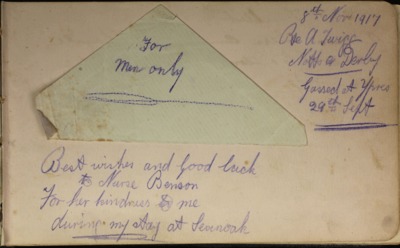 8th Nov 1917
Pte A Twigg
Notts & Derby
Gassed at Ypres
29th Sept
For
Men only
Best wishes and Good luck
to Nurse Benson
For her kindness to me
during my stay at Sevenoak